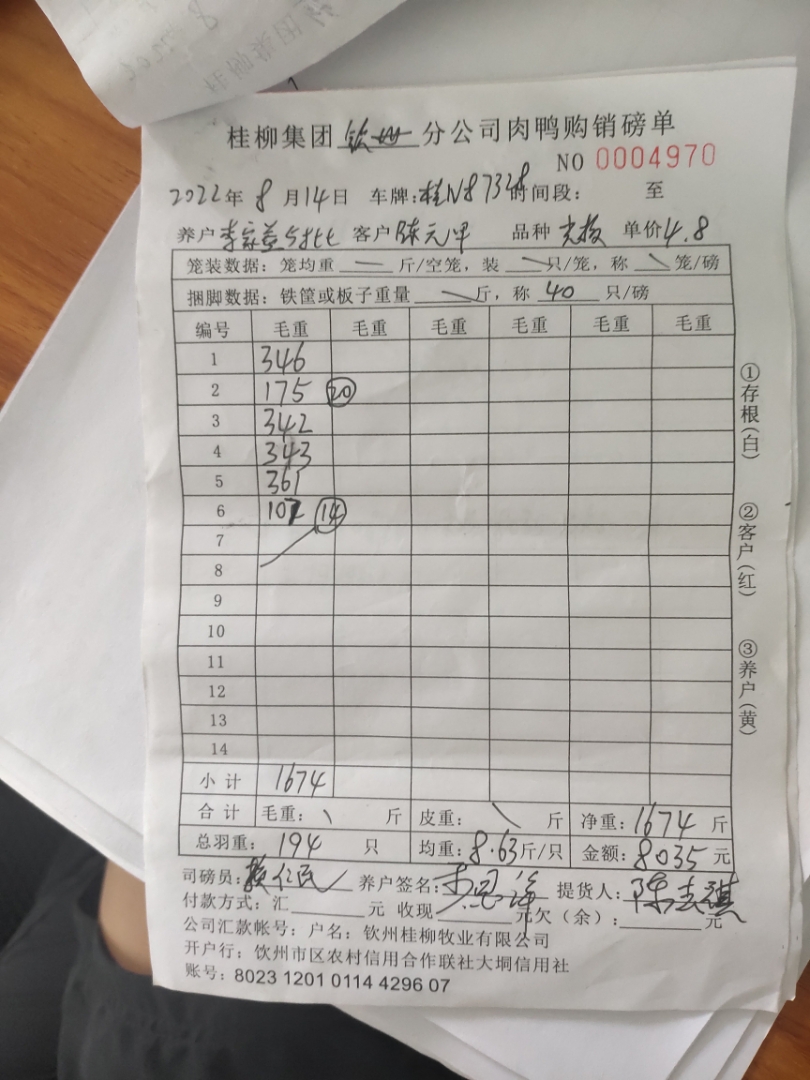 桂柳集团 钦州 分公司肉鸭购销磅单
NO 0004970
2022年 8 月14日 车牌:桂N87328 时间段: 至
养户 客户 陈元 品种 单价4.8
笼装数据: 笼均重 — 斤/空笼, 装 \ 只/笼, 称 \ 笼/磅
捆脚数据: 铁筐或板子重量 \ 斤, 称 40 只/磅
编号 毛重 毛重 毛重 毛重 毛重 毛重
1 346
2 175 ⑳
3 342
4 343
5 361
6 107 ⑭
7
8
9
10
11
12
13
14
小计 1674
合计 毛重: \ 斤 皮重: \ 斤 净重: 1674 斤
总羽重: 194 只 均重: 8.63斤/只 金额: 8035 元
司磅员: 养户签名: 提货人:
付款方式: 汇 元 收现 元欠(余): 元
公司汇款帐号: 户名: 钦州桂柳牧业有限公司
开户行: 钦州市区农村信用合作联社大垌信用社
账号: 8023 1201 0114 4296 07
①存根(白)
②客户(红)
③养户(黄)